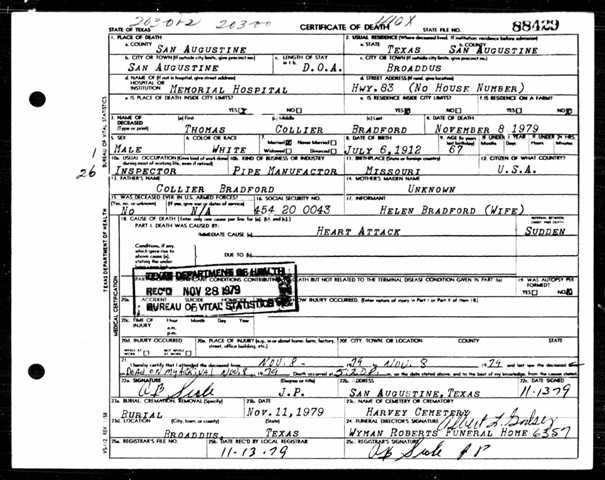 203-002 203-00 410X
STATE OF TEXAS CERTIFICATE OF DEATH STATE FILE NO. 88429
1. PLACE OF DEATH 2. USUAL RESIDENCE (Where deceased lived. If institution: residence before admission)
a. COUNTY SAN AUGUSTINE a. STATE TEXAS b. COUNTY SAN AUGUSTINE
b. CITY OR TOWN (If outside city limits, give precinct no.) c. LENGTH OF STAY c. CITY OR TOWN (If outside city limits, give precinct no.)
SAN AUGUSTINE D.O.A. BROADDUS
d. NAME OF (If not in hospital, give street address) HOSPITAL OR INSTITUTION MEMORIAL HOSPITAL d. STREET ADDRESS (If rural, give location) HWY.83 (NO HOUSE NUMBER)
e. IS PLACE OF DEATH INSIDE CITY LIMITS? YES NO e. IS RESIDENCE INSIDE CITY LIMITS? YES NO f. IS RESIDENCE ON A FARM? YES NO
3. NAME OF DECEASED (Type or print) (a) First (b) Middle (c) Last 4. DATE OF DEATH
THOMAS COLLIER BRADFORD NOVEMBER 8 1979
5. SEX 6. COLOR OR RACE 7. Married Never Married Widowed Divorced 8. DATE OF BIRTH 9. AGE IF UNDER 1 YEAR IF UNDER 24 HRS.
MALE WHITE JULY 6,1912 67
10a. USUAL OCCUPATION (Give kind of work done during most of working life, even if retired) 10b. KIND OF BUSINESS OR INDUSTRY 11. BIRTHPLACE (State or foreign country) 12. CITIZEN OF WHAT COUNTRY?
INSPECTOR PIPE MANUFACTOR MISSOURI U.S.A.
13. FATHER'S NAME 14. MOTHER'S MAIDEN NAME
COLLIER BRADFORD UNKNOWN
15. WAS DECEASED EVER IN U.S. ARMED FORCES? 16. SOCIAL SECURITY NO. 17. INFORMANT
(Yes, no, or unknown) (If yes, give war or dates of service)
NO N/A 454 20 0043 HELEN BRADFORD (WIFE)
18. CAUSE OF DEATH [Enter only one cause per line for (a), (b), and (c).]
PART I. DEATH WAS CAUSED BY:
IMMEDIATE CAUSE (a) HEART ATTACK SUDDEN
Conditions, if any, which gave rise to above cause (a), stating the under-
DUE TO (b)
TEXAS DEPARTMENT OF HEALTH
REC'D NOV 28 1979
BUREAU OF VITAL STATISTICS
DEATH BUT NOT RELATED TO THE TERMINAL DISEASE CONDITION GIVEN IN PART I(a) 19. WAS AUTOPSY PERFORMED? YES NO
20a. ACCIDENT SUICIDE HOW INJURY OCCURRED. (Enter nature of injury in Part I or Part II of Item 18)
20c. TIME OF INJURY Hour Month Day Year a.m. p.m.
20d. INJURY OCCURRED 20e. PLACE OF INJURY (e.g., in or about home, farm, factory, street, office building, etc.) 20f. CITY, TOWN, OR LOCATION COUNTY STATE
21. I hereby certify that I attended the deceased from NOV. 8- 1979 NOV. 8 1979 and last saw the deceased
DEAD ON MY ARRIVAL NOV. 8, 1979 Death occurred at on the date stated above, and to the best of my knowledge, from the causes stated.
22a. SIGNATURE (Degree or title) 22b. ADDRESS 22c. DATE SIGNED
J.P. SAN AUGUSTINE,TEXAS 11-13-79
23a. BURIAL, CREMATION, REMOVAL (Specify) 23b. DATE 23c. NAME OF CEMETERY OR CREMATORY
BURIAL NOV.11,1979 HARVEY CEMETERY
23d. LOCATION (City, town, or county) (State) 24. FUNERAL DIRECTOR'S SIGNATURE
BROADDUS, TEXAS WYMAN ROBERTS FUNERAL HOME 6357
25a. REGISTRAR'S FILE NO. 25b. DATE REC'D BY LOCAL REGISTRAR 25c. REGISTRAR'S SIGNATURE
11-13-79
1
26
TEXAS DEPARTMENT OF HEALTH BUREAU OF VITAL STATISTICS
MEDICAL CERTIFICATION